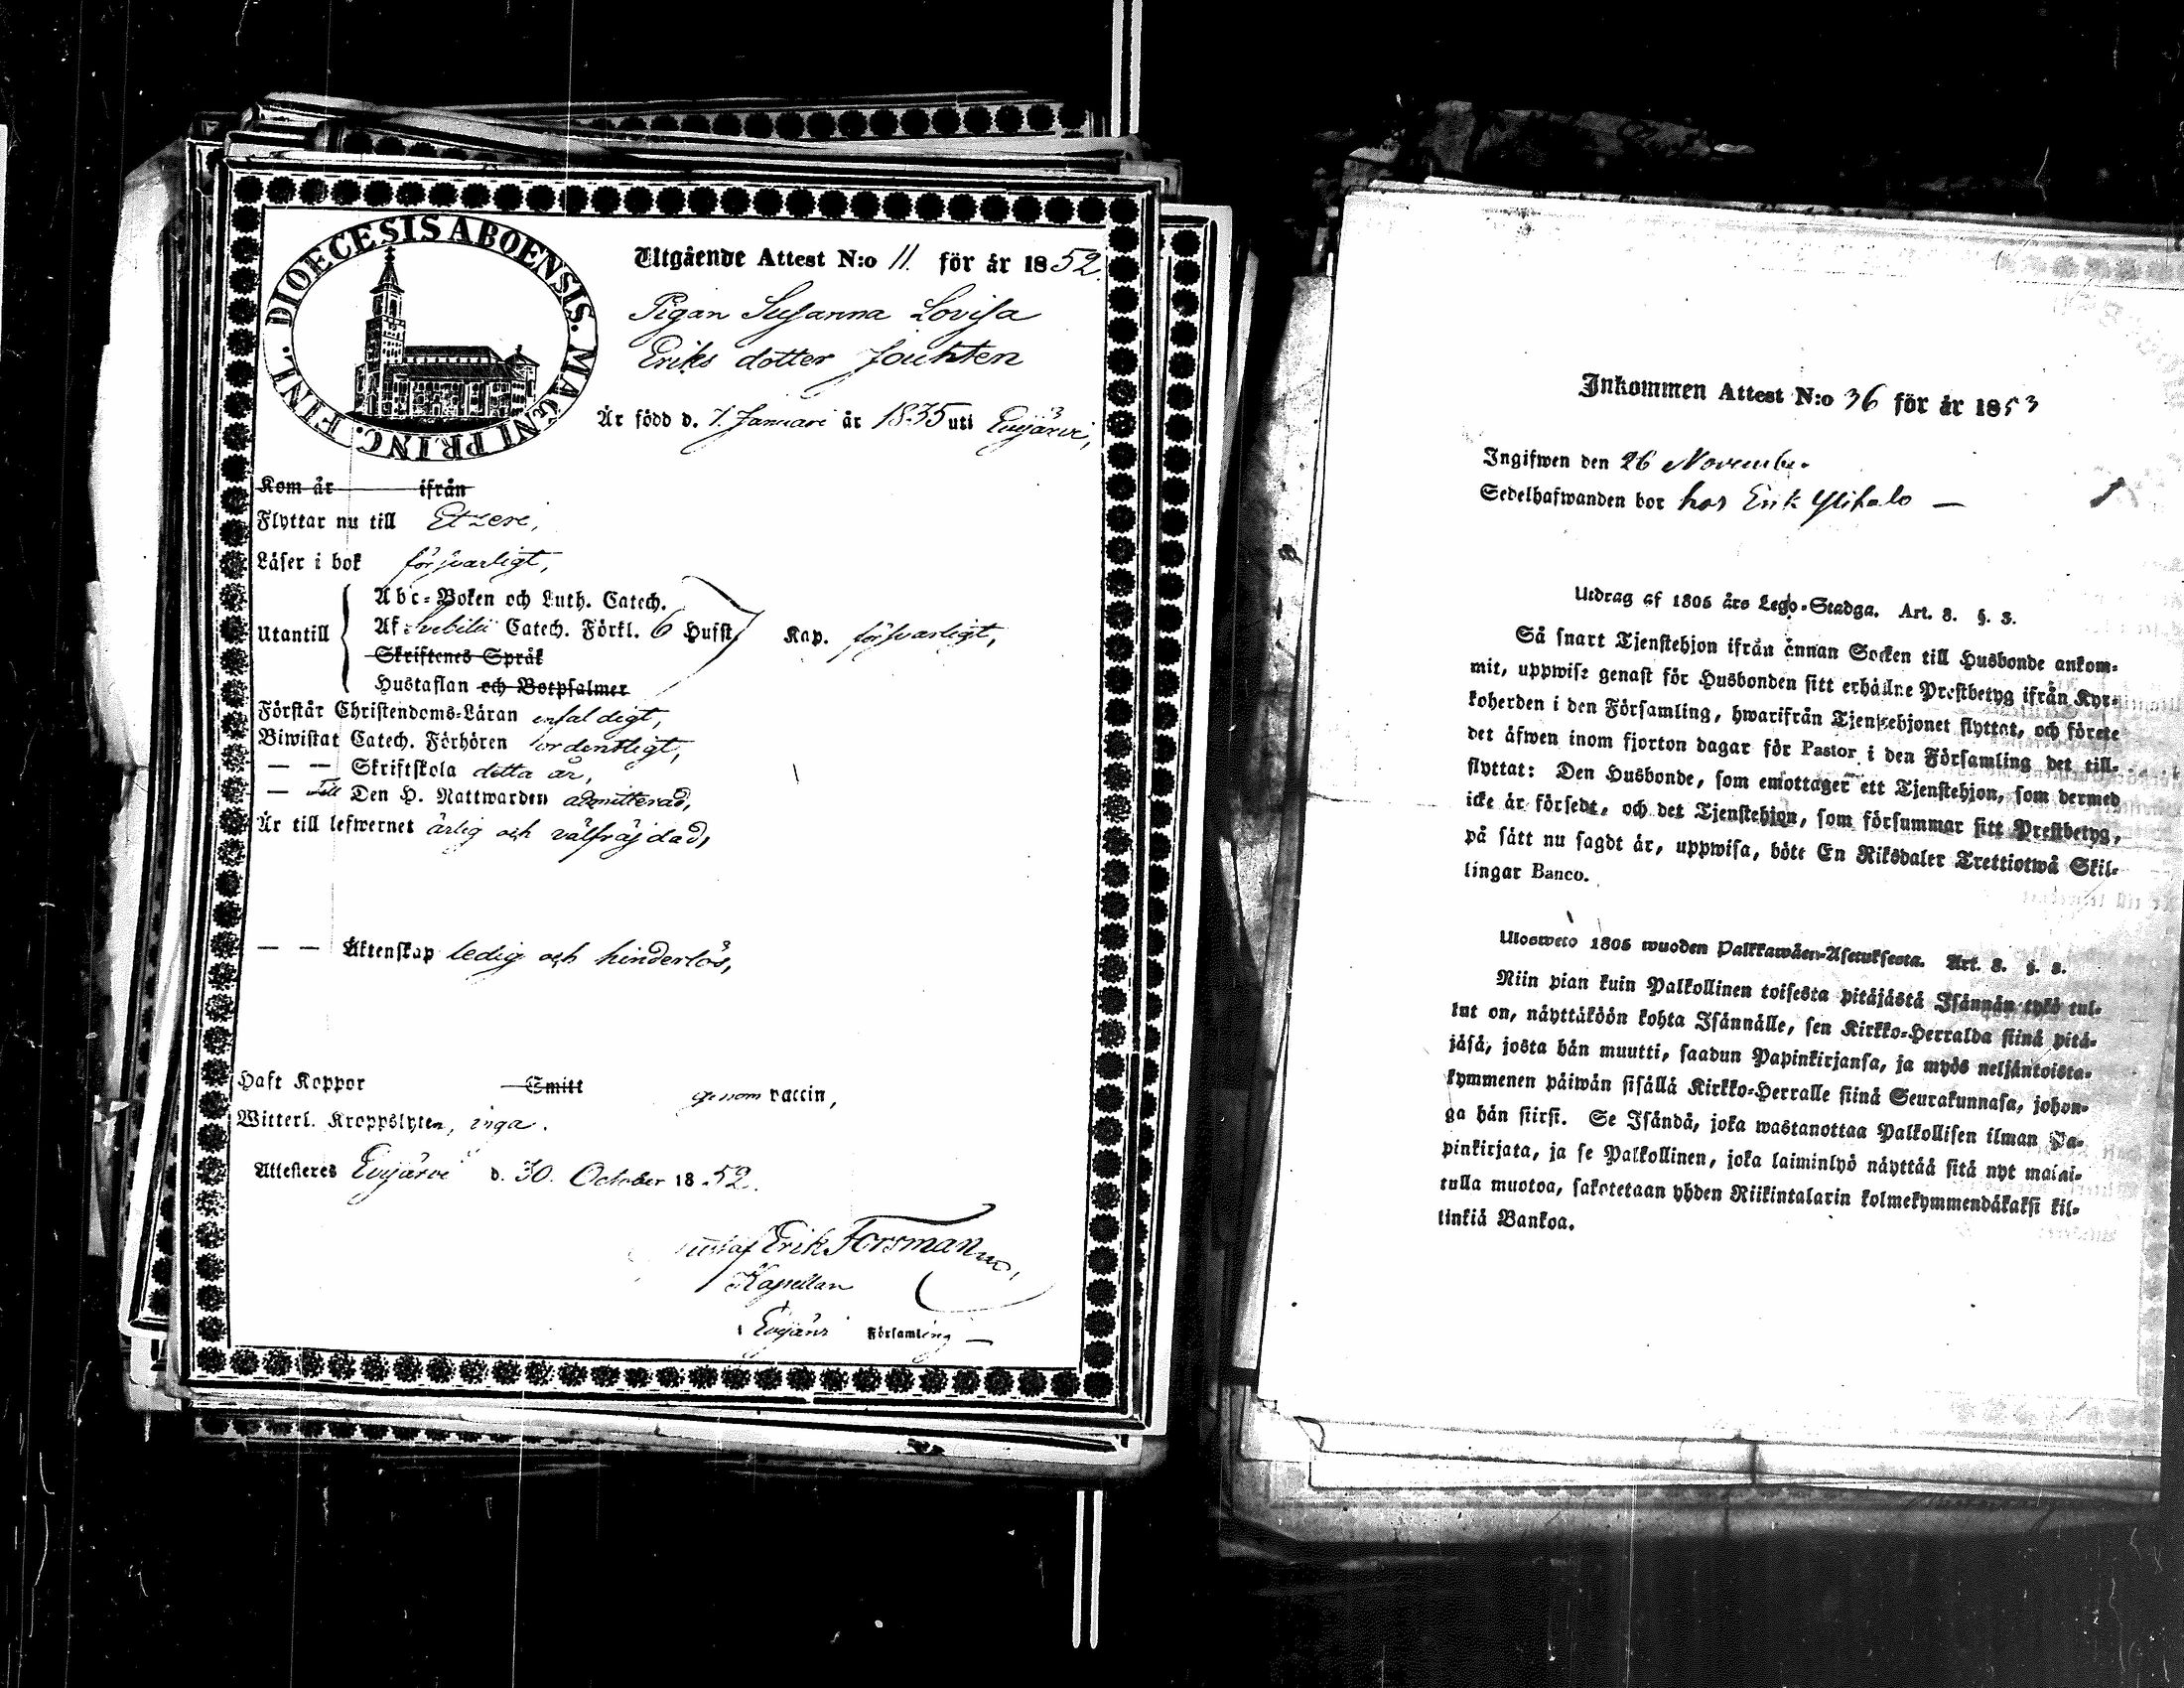 DIOECESIS ABOENSIS. MAGNI PRINC. FINL.
Utgående Attest N:o 11. för år 1852.
Pigan Susanna Lovisa
Eriks dotter Jouhten
Är född d. 7. Januari år 1835 uti Evijärvi,
Kom år ifrån
Flyttar nu till Etzeri,
Läser i bok försvarligt,
Utantill
Abc-Boken och Luth. Catech.
Af Svebilii Catech. Förkl. 6 Hufst. Kap. försvarligt,
Skriftenes Språk
Hustaflan och Botpsalmer
Förstår Christendoms-Läran enfaldigt,
Biwistat Catech. Förhören ordentligt,
— — Skriftskola detta år,
— Till Den H. Nattwarden admitterad,
Är till lefwernet ärlig och välfräjdad,
— — Äktenskap ledig och hinderlös,
Haft Koppor Smitt genom vaccin,
Witterl. Kroppslyten, inga.
Attesteres Evijärvi d. 30. October 1852.
Gustaf Erik Forsman
Kapellan
i Evijärvi Församling —
Inkommen Attest N:o 36 för år 1853
Ingifwen den 26 November
Sedelhafwanden bor hos Erik Ylihalo —
Utdrag af 1805 års Lego-Stadga. Art. 8. §. 3.
Så snart Tjenstehjon ifrån annan Socken till Husbonde ankom-
mit, uppwise genast för Husbonden sitt erhållne Prestbetyg ifrån Kyr-
koherden i den Församling, hwarifrån Tjenstehjonet flyttat, och förete
det äfwen inom fjorton dagar för Pastor i den Församling det till-
flyttat: Den Husbonde, som emottager ett Tjenstehjon, som dermed
icke är försedt, och det Tjenstehjon, som försummar sitt Prestbetyg,
på sätt nu sagdt är, uppwisa, böte En Riksdaler Trettiotwå Skil-
lingar Banco.
Uloswето 1805 wuoden Palkkawäen-Asetuksesta. Art. 8. §. 3.
Niin pian kuin Palkollinen toisesta pitäjästä Isännän tykö tul-
lut on, näyttäköön kohta Isännälle, sen Kirkko-Herralda siinä pitä-
jäsä, josta hän muutti, saadun Papinkirjansa, ja myös neljäntoista-
kymmenen päiwän sisällä Kirkko-Herralle siinä Seurakunnasa, johon-
ga hän siirsi. Se Isändä, joka wastanottaa Palkollisen ilman Pa-
pinkirjata, ja se Palkollinen, joka laiminlyö näyttää sitä nyt mainit-
tulla muotoa, sakotetaan yhden Riikintalarin kolmekymmendäkaksi kil-
linkiä Bankoa.